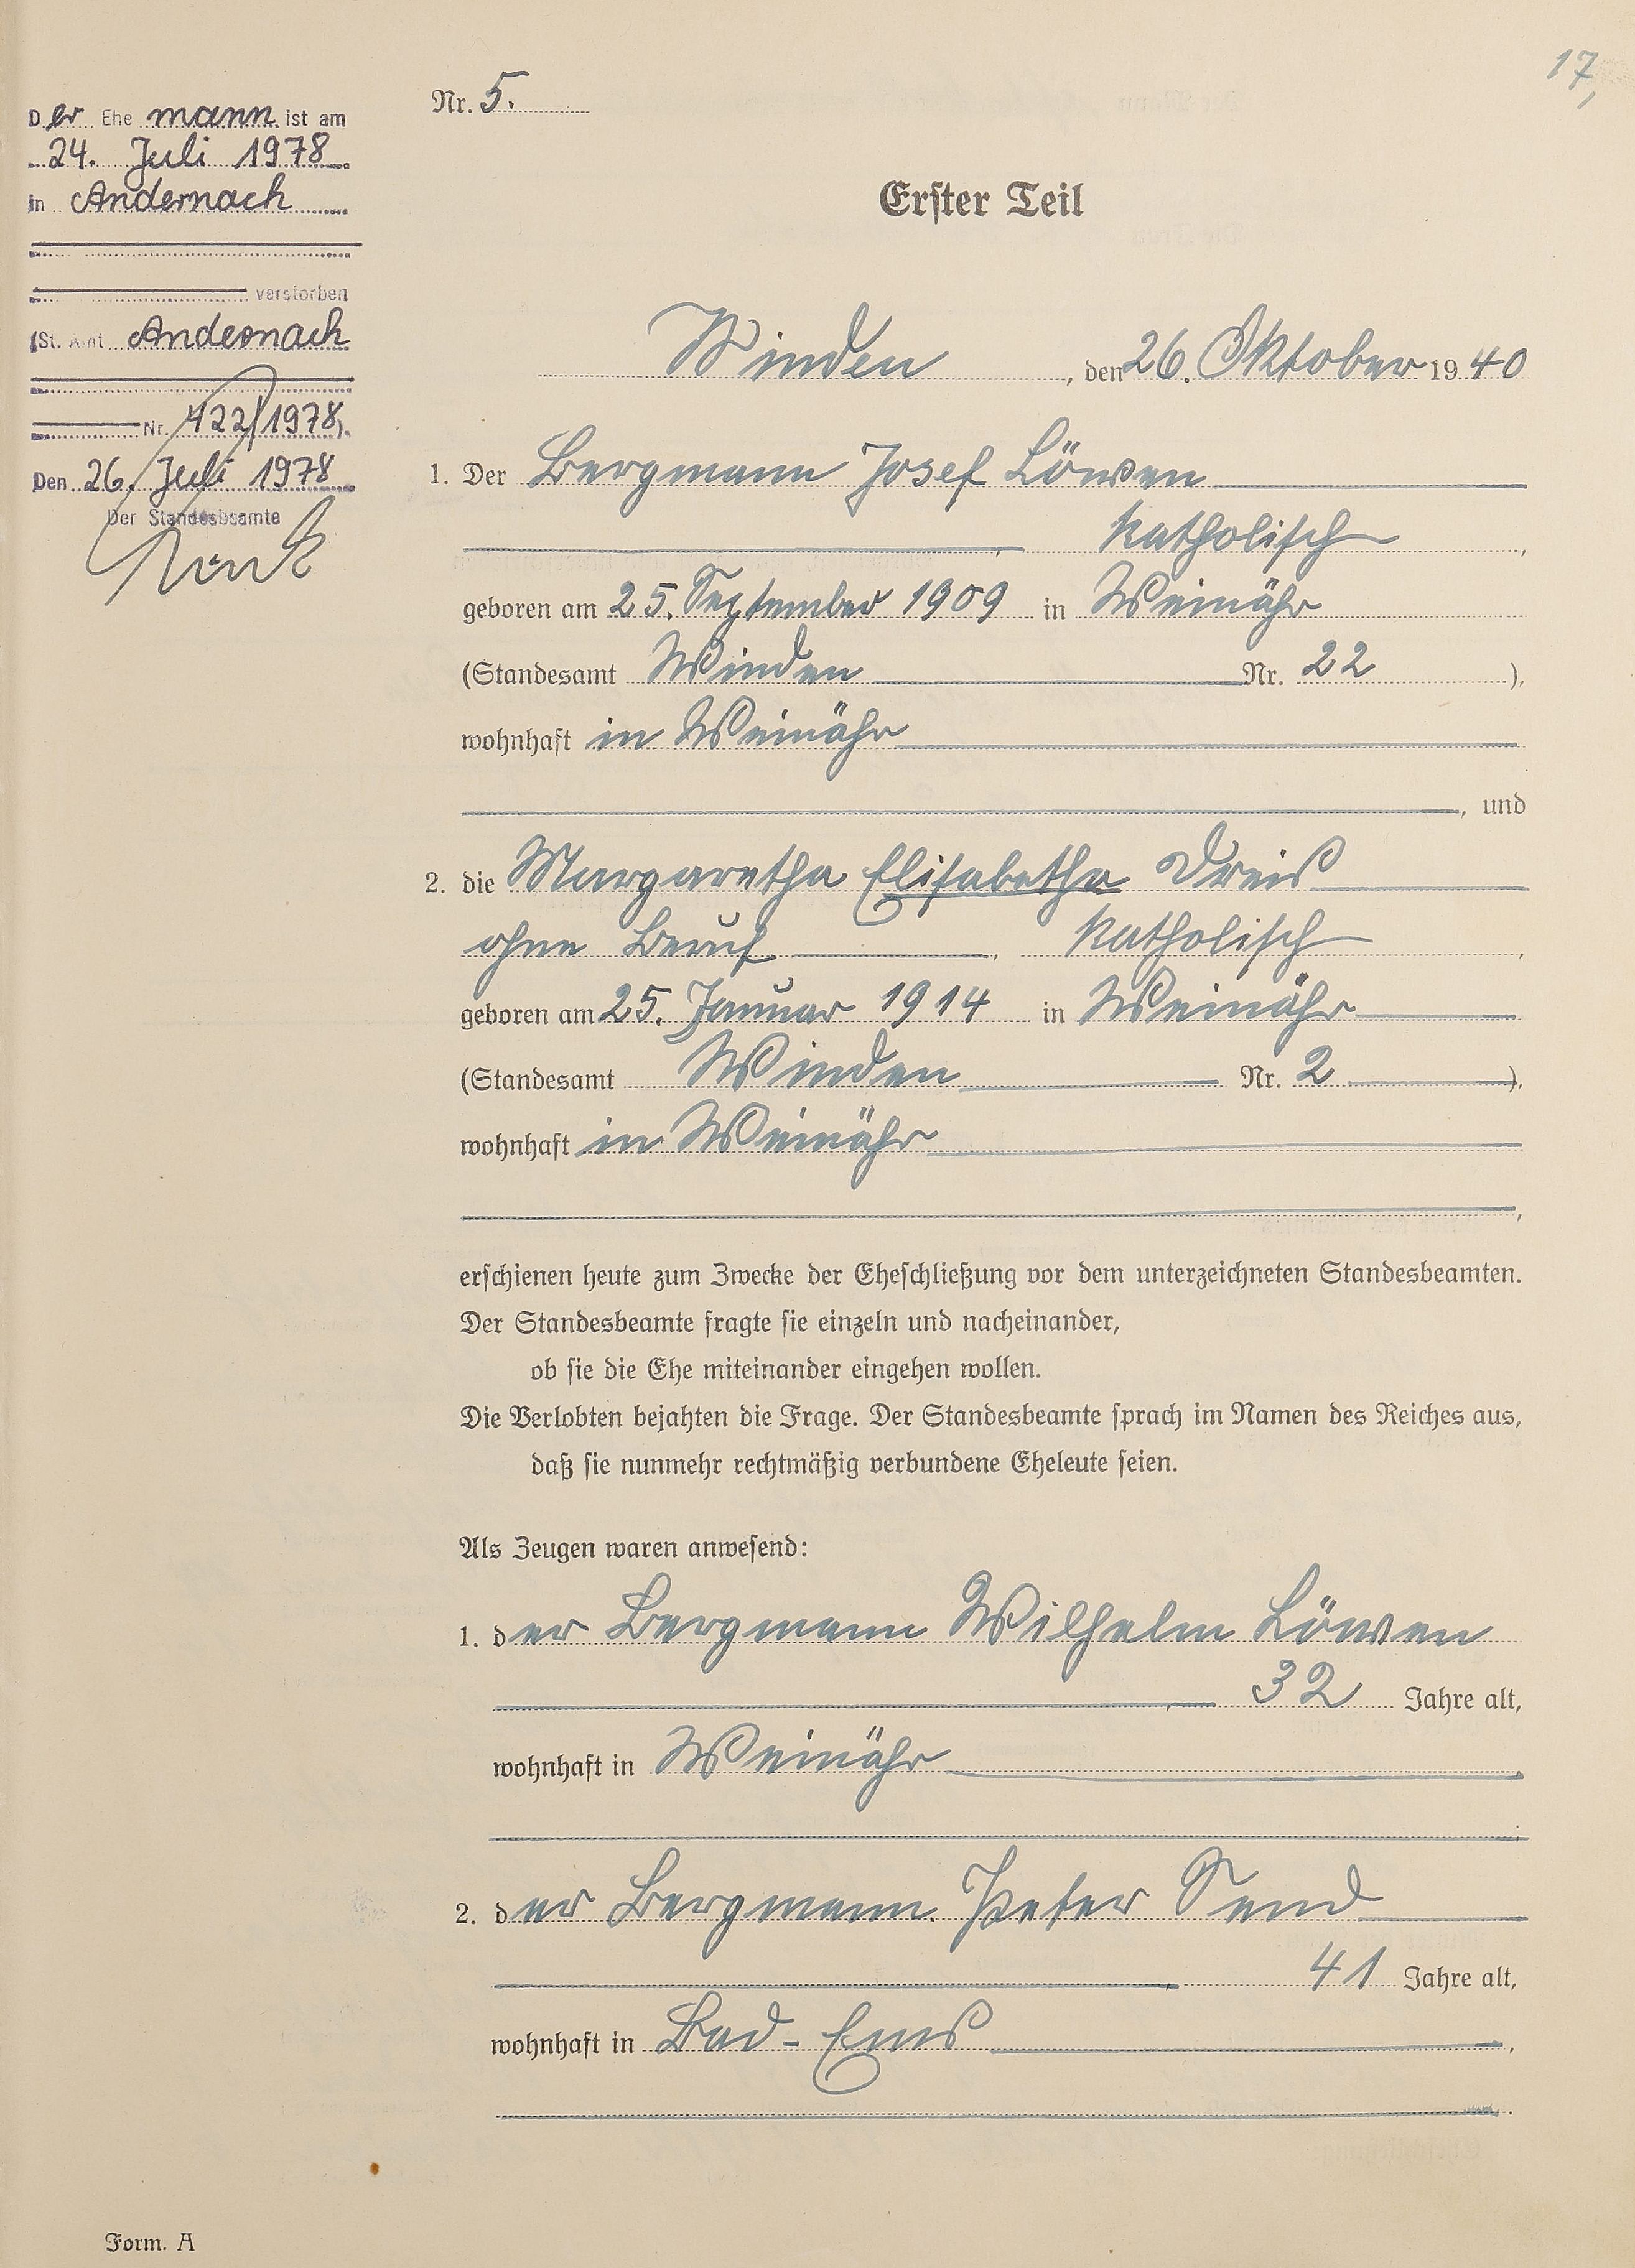 17,
Der Ehe mann ist am
24. Juli 1978
in Andernach
verstorben
(St. Amt Andernach
Nr. 422/1978).
Den 26. Juli 1978
Der Standesbeamte
Nr. 5.
Erster Teil
Winden, den 26. Oktober 1940
1. Der Bergmann Josef Löwen
, katholisch,
geboren am 25. September 1909 in Weinähr
(Standesamt Winden Nr. 22),
wohnhaft in Weinähr
, und
2. die Margaretha Elisabetha Dreis
ohne Beruf, katholisch,
geboren am 25. Januar 1914 in Weinähr
(Standesamt Winden Nr. 2),
wohnhaft in Weinähr
,
erschienen heute zum Zwecke der Eheschließung vor dem unterzeichneten Standesbeamten.
Der Standesbeamte fragte sie einzeln und nacheinander,
ob sie die Ehe miteinander eingehen wollen.
Die Verlobten bejahten die Frage. Der Standesbeamte sprach im Namen des Reiches aus,
daß sie nunmehr rechtmäßig verbundene Eheleute seien.
Als Zeugen waren anwesend:
1. der Bergmann Wilhelm Löwen
, 32 Jahre alt,
wohnhaft in Weinähr
2. der Bergmann Peter Send
41 Jahre alt,
wohnhaft in Bad-Ems,
.
Form. A